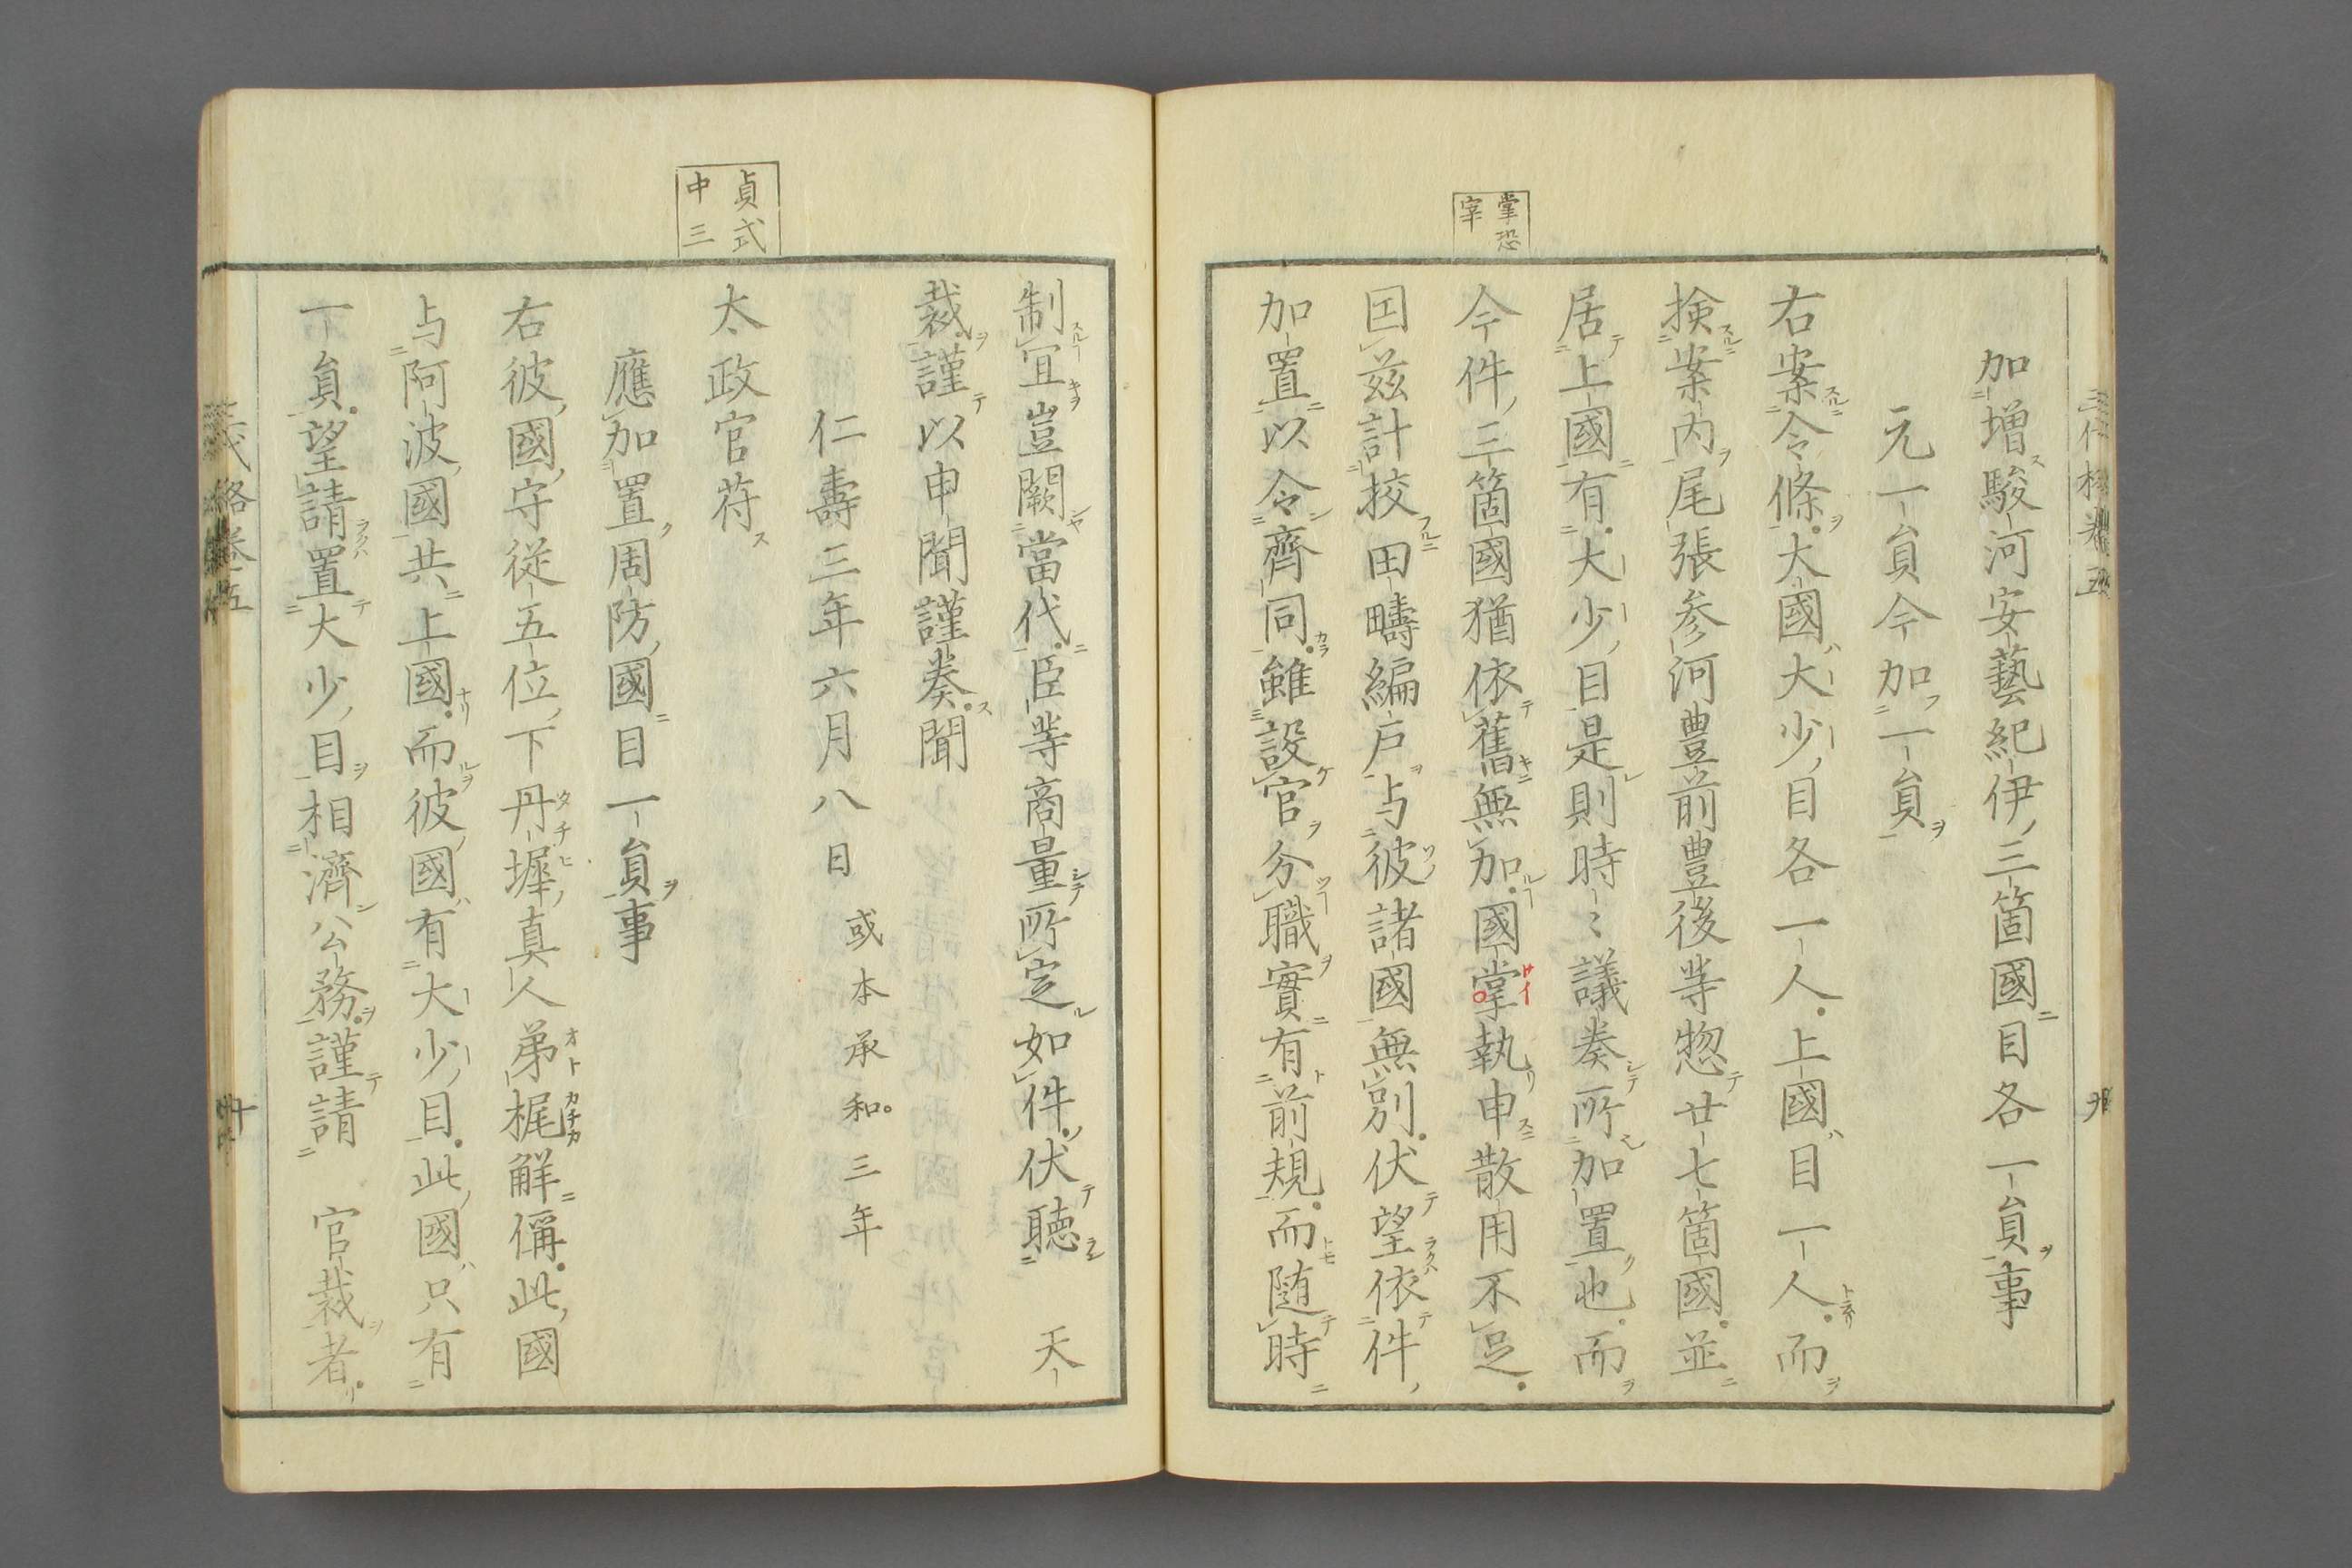 掌恐
宰
加増駿河安藝紀伊三箇國目各一員事
元一員今加一員
右案令條大國大少目各一人上國目一人而
捡案内尾張参河豊前豊後等惣廿七箇國並
居上國有大少目是則時々議奏所加置也而
今件三箇國猶依舊無加國掌執申散用不足
因茲計挍田疇編戸与彼諸國無別伏望依件
加置以令齊同雖設官分職實有前規而随時
貞式
中三
制宜豈闕當代臣等商量所定如件伏聴 天
裁謹以申聞謹奏聞
仁壽三年六月八日 或本承和三年
太政官苻
應加置周防國目一員事
右彼國守従五位下丹墀真人弟梶解偁此國
与阿波國共上國而彼國有大少目此國只有
一員望請置大少目相濟公務謹請 官裁者
三代格巻五